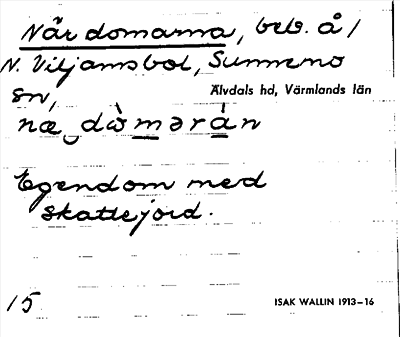 Närdomarna, beb. å 1
N. Viljamsbol, Sunnemo
sn, Älvdals hd, Värmlands län
Egendom med
skattejord.
15 ISAK WALLIN 1913–16